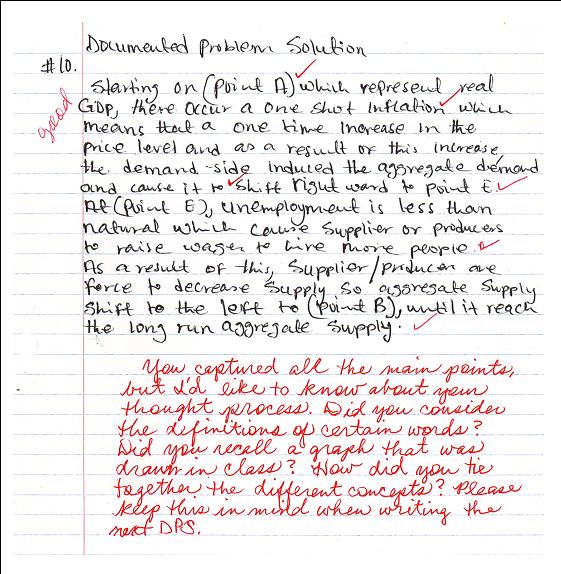 Documented Problem Solution
#10.
good
Starting on (Point A) which represent real
GDP, there occur a one shot inflation which
means that a one time increase in the
price level and as a result of this increase,
the demand-side induced the aggregate demand
and cause it to shift right ward to point E.
At (Point E), unemployment is less than
natural which cause supplier or producers
to raise wages to hire more people.
As a result of this, supplier/producer are
force to decrease supply so aggregate supply
shift to the left to (Point B), until it reach
the long run aggregate supply.
You captured all the main points,
but I'd like to know about your
thought process. Did you consider
the definitions of certain words?
Did you recall a graph that was
drawn in class? How did you tie
together the different concepts? Please
keep this in mind when writing the
next DPS.